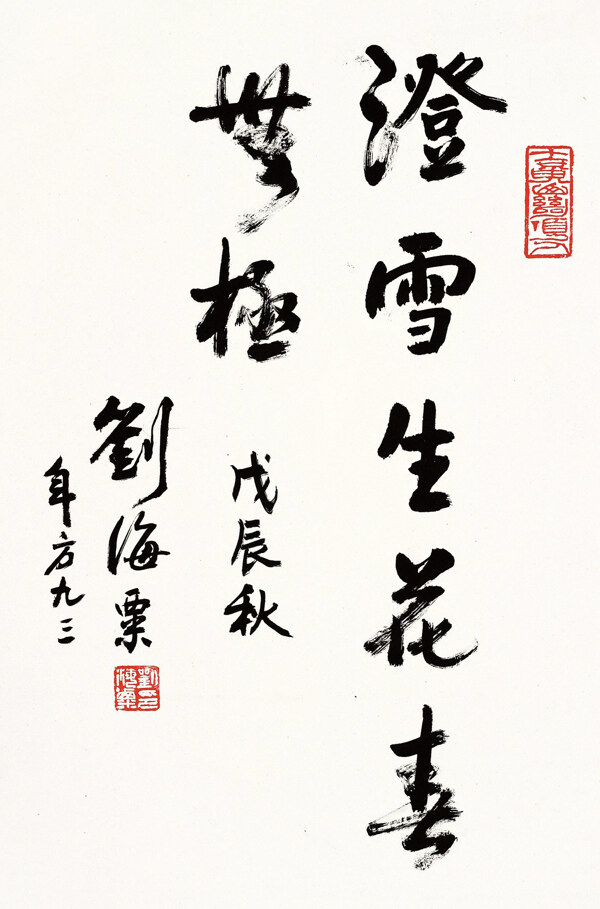 澄雪生花春
無極
戊辰秋
劉海粟
年方九三
劉海粟印